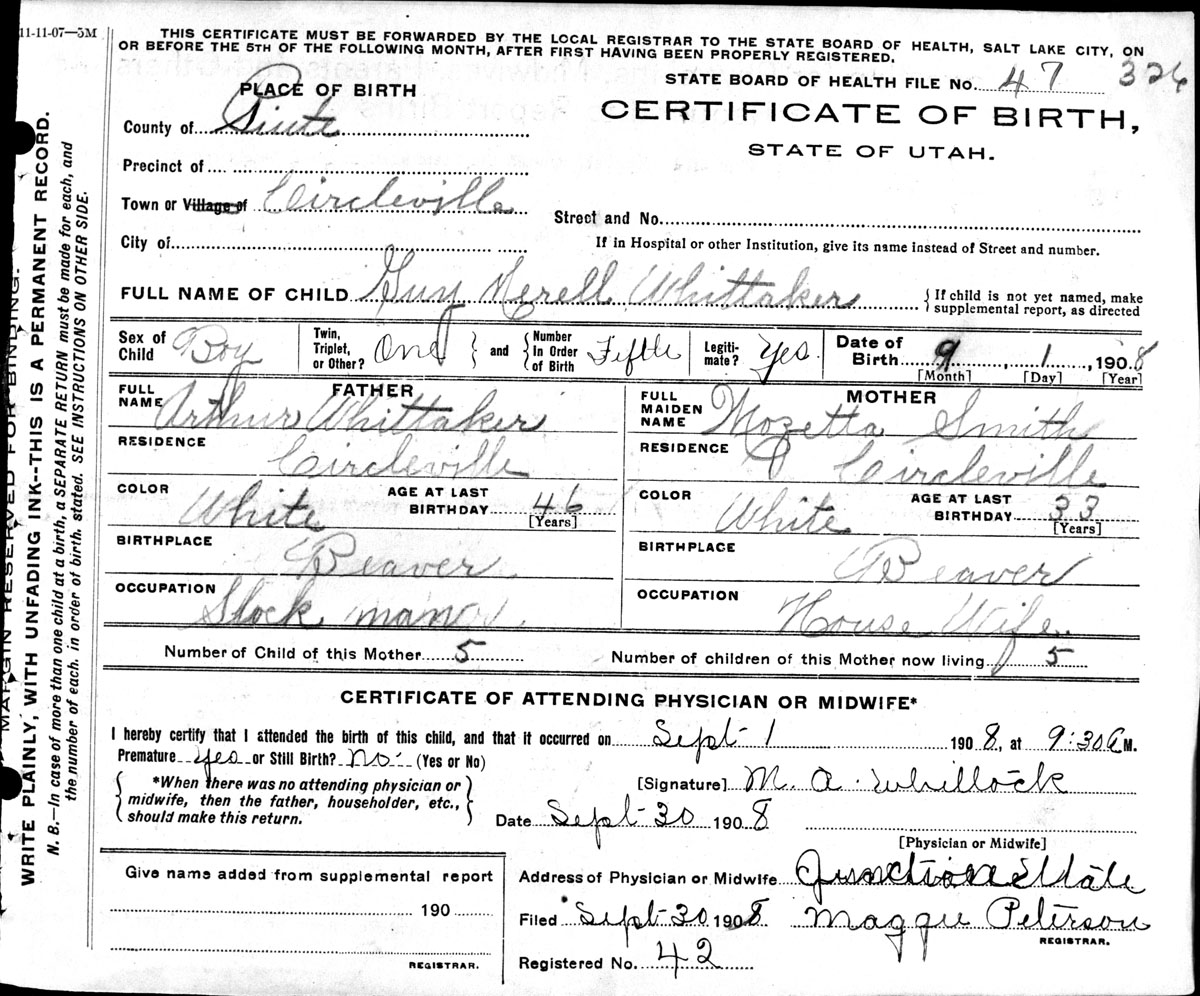 11-11-07—5M
THIS CERTIFICATE MUST BE FORWARDED BY THE LOCAL REGISTRAR TO THE STATE BOARD OF HEALTH, SALT LAKE CITY, ON
OR BEFORE THE 5TH OF THE FOLLOWING MONTH, AFTER FIRST HAVING BEEN PROPERLY REGISTERED.
STATE BOARD OF HEALTH FILE No. 47 326
PLACE OF BIRTH
CERTIFICATE OF BIRTH,
STATE OF UTAH.
County of Piute
Precinct of
Town or Village of Circleville
Street and No.
City of
If in Hospital or other Institution, give its name instead of Street and number.
FULL NAME OF CHILD Guy Merell Whittaker
{ If child is not yet named, make
supplemental report, as directed
Sex of Child Boy
Twin, Triplet, or Other? One } and { Number In Order of Birth Fifth
Legiti-mate? Yes
Date of Birth 9, 1, 1908
[Month] [Day] [Year]
FATHER
FULL NAME Arthur Whittaker
RESIDENCE Circleville
COLOR White
AGE AT LAST BIRTHDAY 46
[Years]
BIRTHPLACE Beaver
OCCUPATION Stock man
MOTHER
FULL MAIDEN NAME Mozetta Smith
RESIDENCE Circleville
COLOR White
AGE AT LAST BIRTHDAY 33
[Years]
BIRTHPLACE Beaver
OCCUPATION House Wife
Number of Child of this Mother 5
Number of children of this Mother now living 5
CERTIFICATE OF ATTENDING PHYSICIAN OR MIDWIFE*
I hereby certify that I attended the birth of this child, and that it occurred on Sept 1 1908, at 9:30 A M.
Premature Yes or Still Birth? No (Yes or No)
{ *When there was no attending physician or
midwife, then the father, householder, etc.,
should make this return. }
[Signature] M. A. Whillock
Date Sept 30 1908
[Physician or Midwife]
Address of Physician or Midwife Junction
Filed Sept 30 1908 Maggie Peterson
REGISTRAR.
Registered No. 42
Give name added from supplemental report
190
REGISTRAR.
MARGIN RESERVED FOR BINDING.
WRITE PLAINLY, WITH UNFADING INK--THIS IS A PERMANENT RECORD.
N. B.—In case of more than one child at a birth, a SEPARATE RETURN must be made for each, and
the number of each, in order of birth, stated. SEE INSTRUCTIONS ON OTHER SIDE.